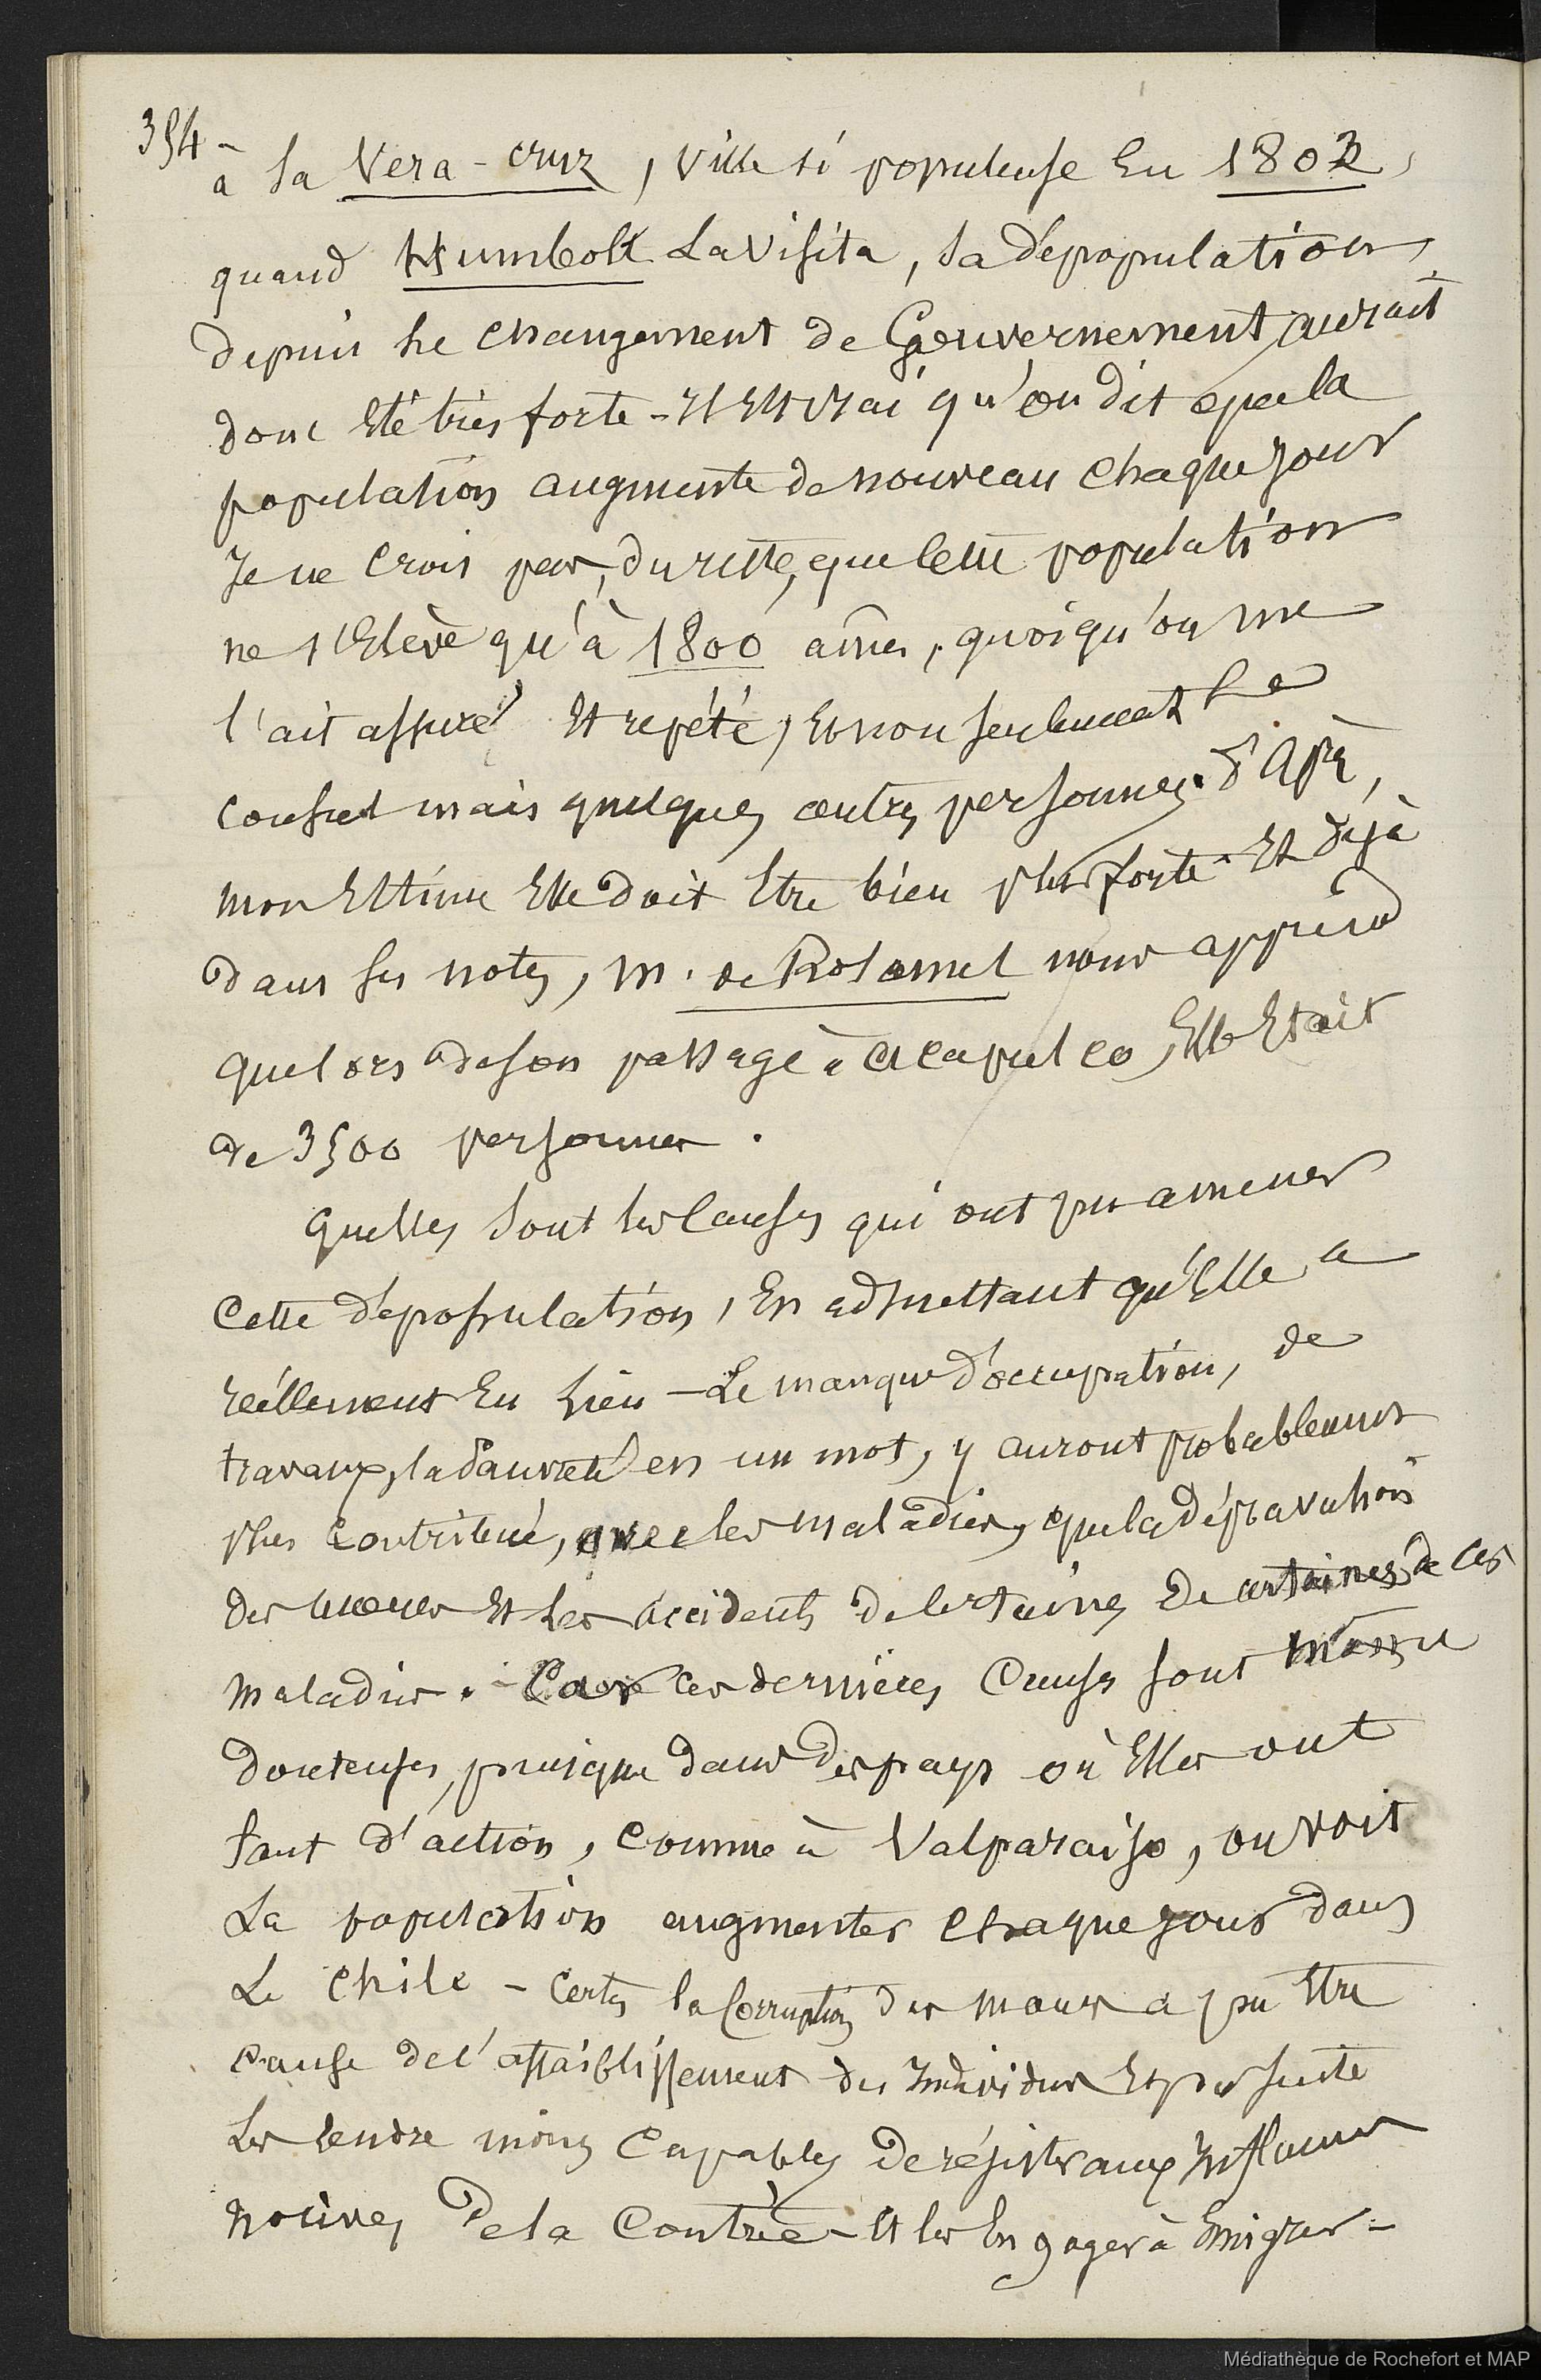 354 -
à la Vera-cruz, ville si populeuse En 1802,
quand Humbolt La visita, sa dépopulation,
depuis Le changement de Gouvernement aurait
donc Eté très forte - Il Est vrai qu'on dit que la
population augmente de nouveau chaque jour
Je ne crois pas, du reste, que cette population
ne s'Elève qu'à 1800 âmes, quoiqu'on me
l'ait assuré Et répété, Et non seulement Le
Consul mais quelques autres personnes. D'Après
mon Estime Elle doit Etre bien plus forte. Et déjà
dans ses notes, m. de Rosamel nous apprend
que lors de son passage à Acapulco, Elle Etait
de 3500 personnes.
Quelles sont les Causes qui ont pu amener
Cette dépopulation, En admettant qu'Elle a
réellement Eu Lieu - Le manque d'occupation, de
travaux, la pauvreté en un mot, y auront probablement
plus Contribué, avec les maladies, que la dépravation
des mœurs Et Les accidents de Certaines de certaines de ces
maladies. Car ces dernières Causes sont même
douteuses, puisque dans des pays où Elles ont
tant d'action, Comme à Valparaiso, on voit
La population augmenter chaque jour dans
Le Chile - Certes la Corruption des mœurs a pu Etre
Cause de l'affaiblissement des Individus Et par suite
Les rendre moins Capables de résister aux Influences
nocives de la Contrée - Et les Engager à Emigrer -
Médiathèque de Rochefort et MAP